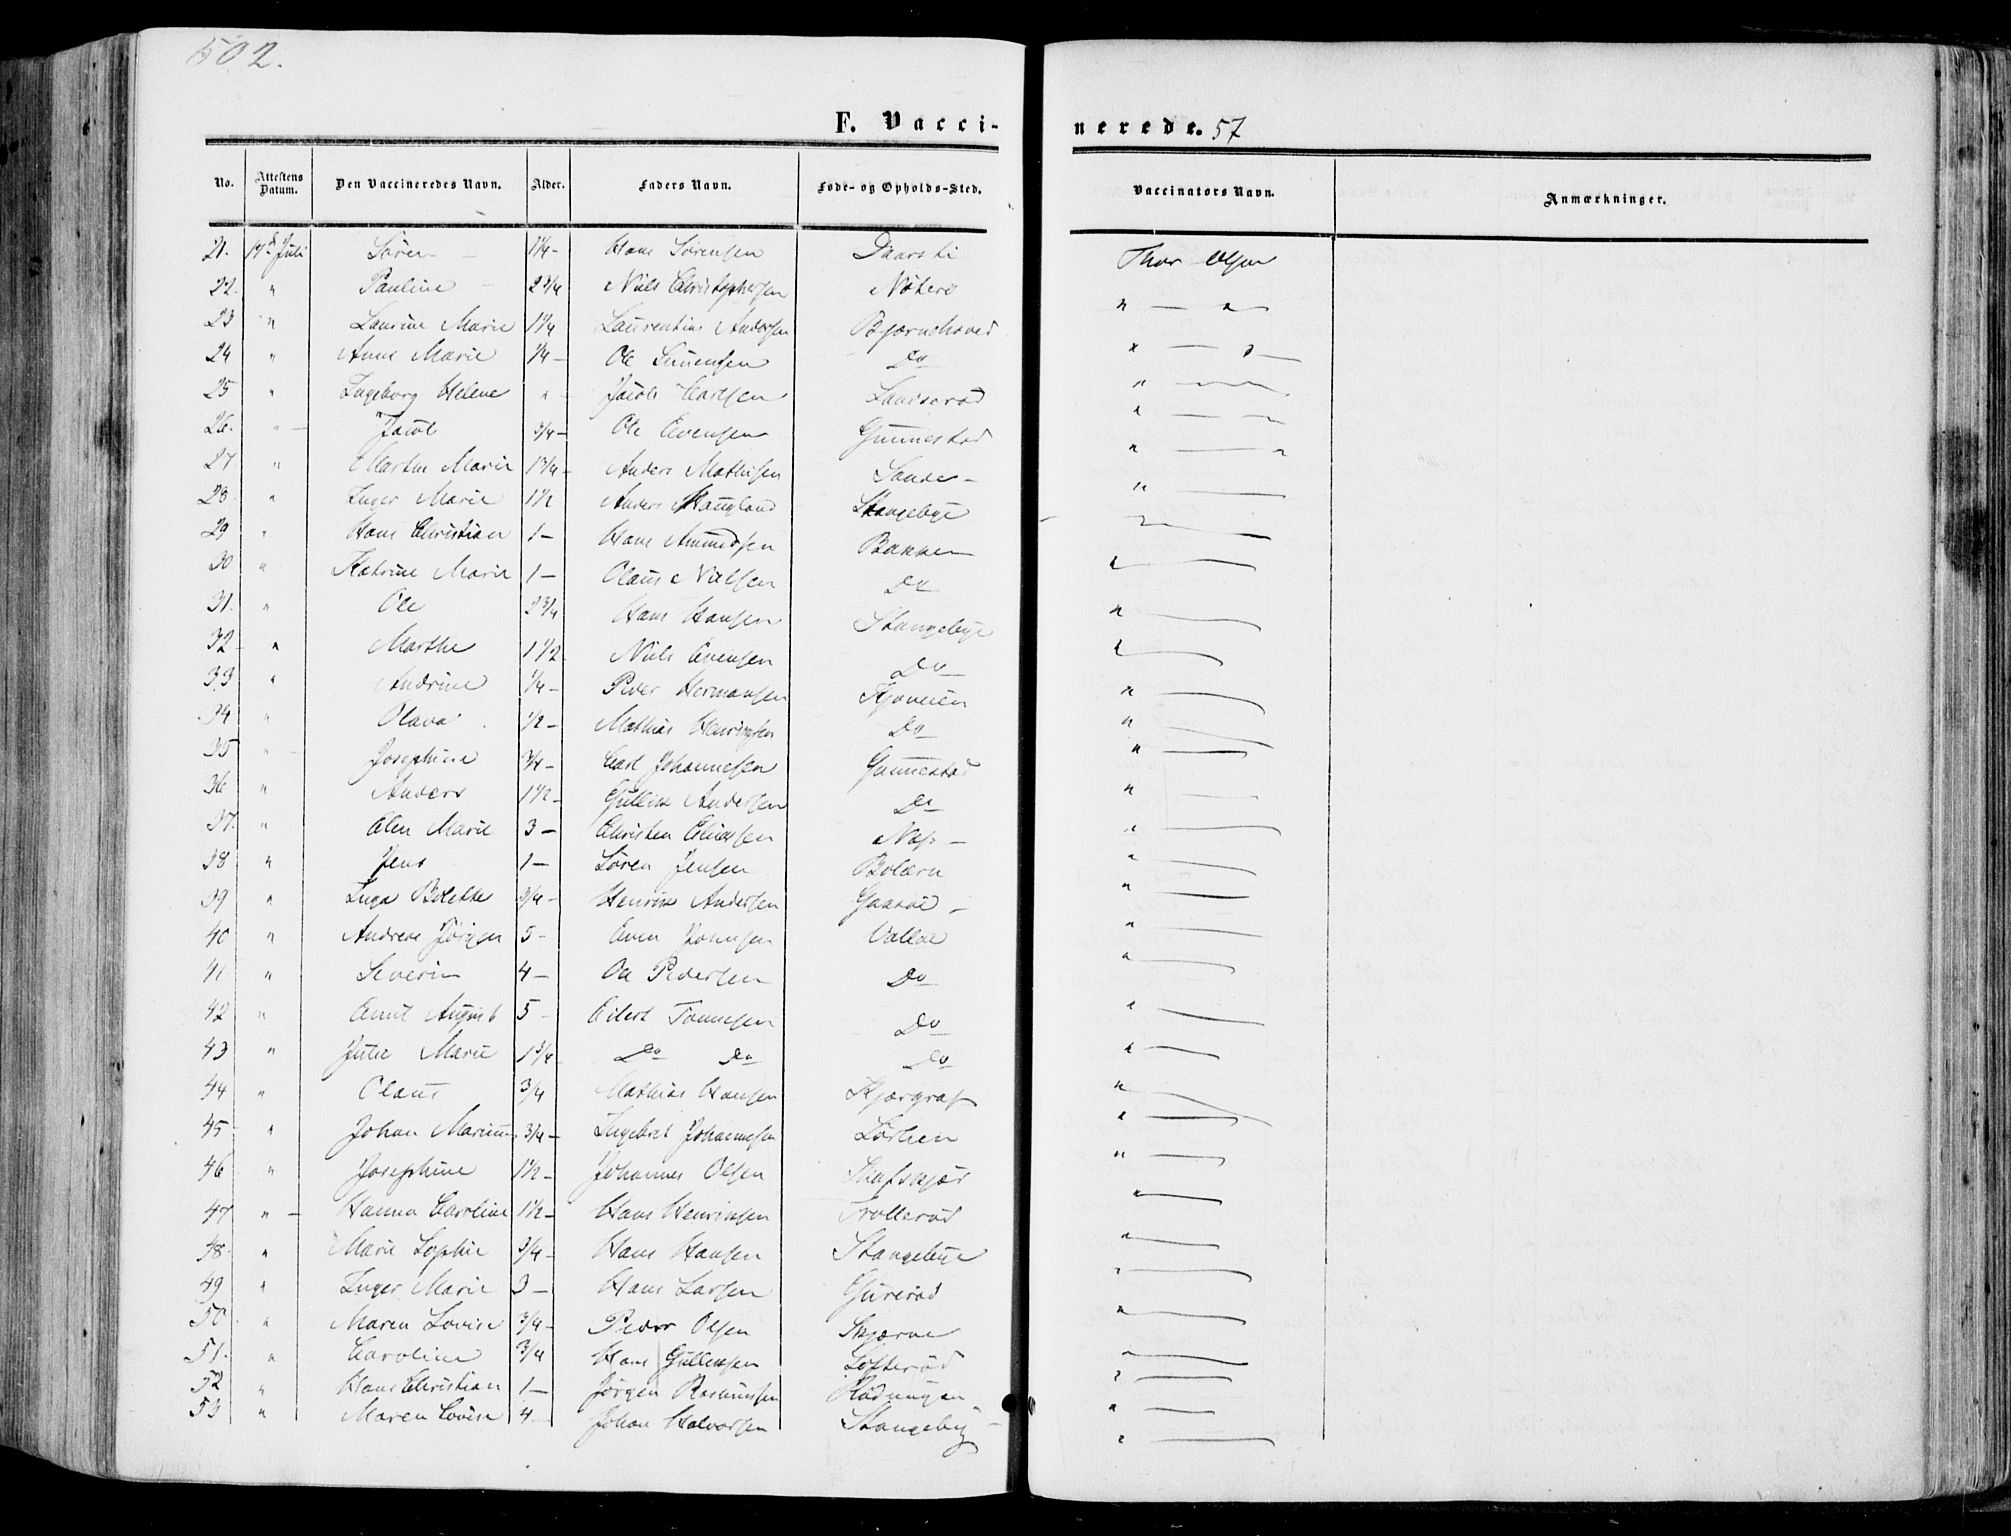 502.
F. Vaccinerede. 57
No. Attestens Datum. Den Vaccineredes Navn. Alder. Faders Navn. Føde- og Opholds-Sted. Vaccinators Navn. Anmærkninger.
21. 14de Juli Søren 1¼ Hans Sørensen Thor Olsen
22. " Pauline 2¾ Niels Christophersen Nøterø " — "
23 " Laurine Marie 1¼ Laurentius Andersen Bjørnehoved " — "
24 " Anne Marie ¼ Ole Do " —
25 " Ingeborg Helene " Jacob Carlsen " —
26. " Jacob ¾ Ole Evensen Gunnestad " —
27 " Marthe Marie 1¼ Anders Mathisen Sande " — "
28 " Inger Marie 1½ Anders Haugland Stangebye " —
29 " Hans Christian 1 Hans Amundsen Bakken " —
30 " Katrine Marie 1 Olaus Nielsen Do " —
31. " Ole 2¾ Hans Hansen Stangebye " —
32 " Marthe 1½ Niels Evensen Do " —
33 " Andrine ¼ Peder Hermansen " —
34 " Olava ½ Mathias Henriksen Do " —
35 " Josephine ¾ Carl Johannesen Gunnestad " —
36 " Anders 1½ Gullik Andersen Do " —
37. " Olea Marie 3 Christen " —
38 " Jens 1 Søren Jensen Bolærn " —
39 " Inga Bolette ¾ Henrik Andersen " —
40 " Andreas Jørgen 5 Even Johnsen Valløe " —
41 " Severin 4 Ole Pedersen Do " —
42 " Emil August 5 Eilert Tønnesen Do " —
43 " Julie Marie 1¾ Do Do Do " —
44 " Olaus ¾ Mathias Hansen " —
45 " Johan Marius ¾ Ingebret Johannesen " —
46 " Josephine 1½ Johannes Olsen " —
47 " Hanna Caroline 1½ Hans Henriksen Trollerød " —
48 " Marie Sophie ¾ Hans Hansen Stangebye " —
49 " Inger Marie 3 Hans Larsen " —
50 " Maren Lovise ¾ Peder Olsen Skjærve " —
51. " Caroline ¾ Hans Gulliksen Lofterød " —
52 " Hans Christian 1 Jørgen Rasmussen " —
53 " Maren Lovise 4 Johan Halvorsen Stangeby " —